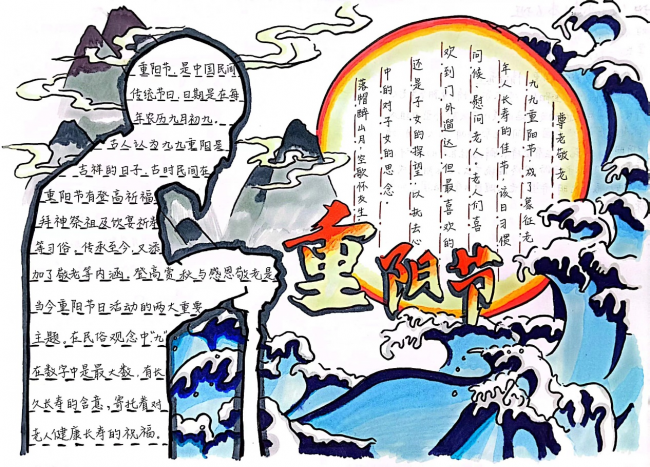 重阳节,是中国民间
传统节日,日期是在每
年农历九月初九。
古人认为九九重阳是
吉祥的日子,古时民间在
重阳节有登高祈福、
拜神祭祖及饮宴祈寿
等习俗,传承至今,又添
加了敬老等内涵,登高赏秋与感恩敬老是
当今重阳节日活动的两大重要
主题,在民俗观念中“九”
在数字中是最大数,有长
久长寿的含意,寄托着对
老人健康长寿的祝福。
尊老敬老
九九重阳节,成了象征老
年人长寿的佳节,该日习惯
问候、慰问老人,老人们喜
欢到门外遛达,但最喜欢的
还是子女的探望,以执去心
中的对子女的思念。
落帽醉山月,空歌怀友生
重阳节